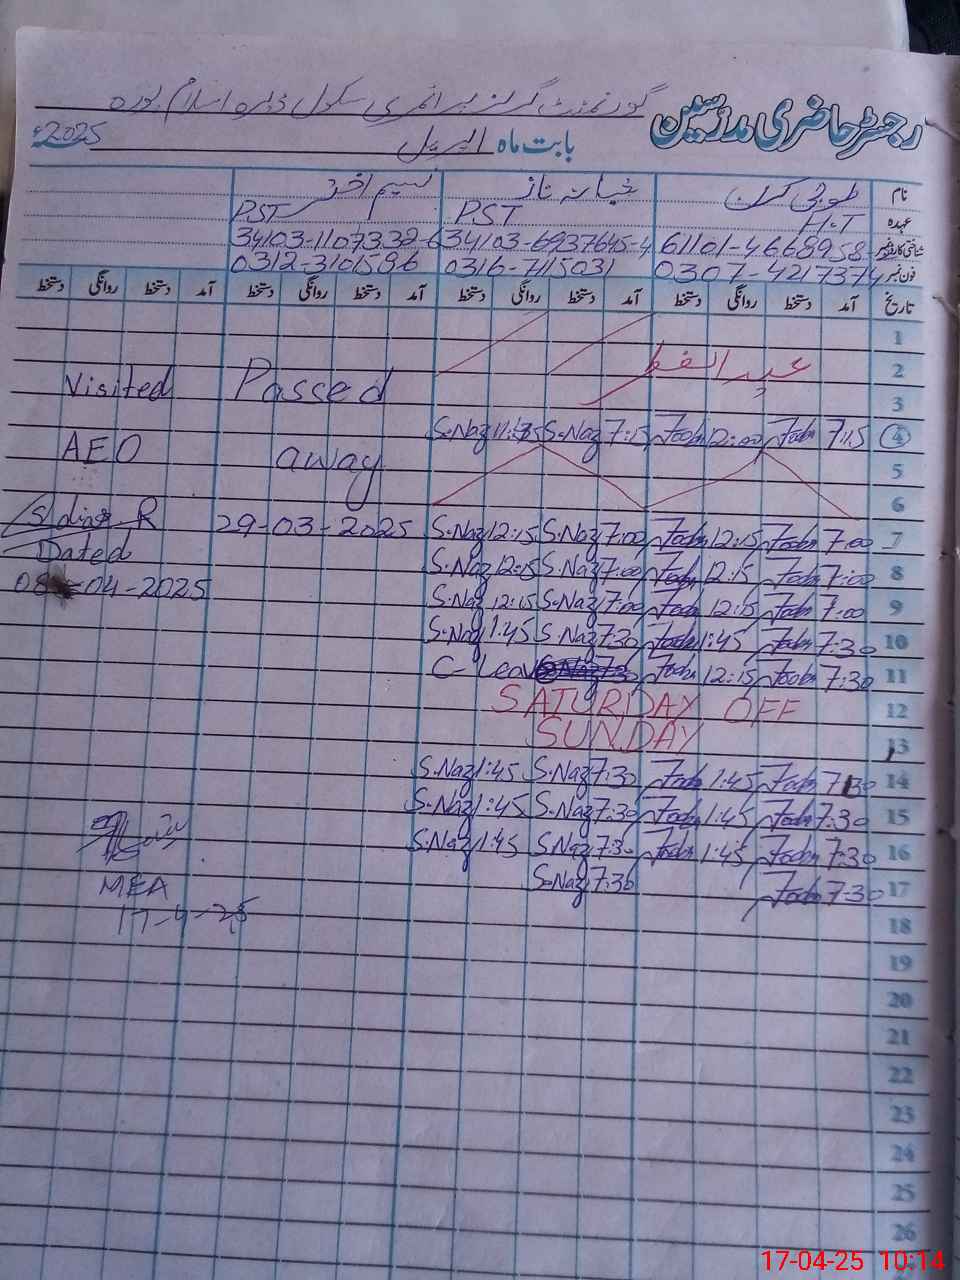 گورنمنٹ گرلز پرائمری سکول ڈیرہ اسلام پورہ
رجسٹر حاضری مدرسین
بابت ماہ اپریل 2025ء
نام طوبیٰ کرن ناز نسیم اختر
عہدہ H.T PST PST
شناختی کارڈ نمبر 61101-4668958-8 34103-6937645-4 34103-1107332-6
فون نمبر 0307-4217374 0316-7115031 0312-3101586
تاریخ آمد دستخط روانگی دستخط آمد دستخط روانگی دستخط آمد دستخط روانگی دستخط آمد دستخط روانگی دستخط
1
2 عید الفطر
Visited Passed
3
S.Naz 11:35 S.Naz 7:15 12:00 7:15 4
AEO away
5
6
R 29-03-2025 S.Naz 12:15 S.Naz 7:00 12:15 7:00 7
Dated S.Naz 12:15 S.Naz 7:00 12:15 7:00 8
08-04-2025 S.Naz 12:15 S.Naz 7:00 12:15 7:00 9
S.Naz 1:45 S.Naz 7:30 1:45 7:30 10
C-Leave 12:15 7:30 11
SATURDAY OFF 12
SUNDAY 13
S.Naz 1:45 S.Naz 7:30 1:45 7:30 14
S.Naz 1:45 S.Naz 7:30 1:45 7:30 15
S.Naz 1:45 S.Naz 7:30 1:45 7:30 16
MEA S.Naz 7:30 7:30 17
17-4-25 18
19
20
21
22
23
24
25
26
17-04-25 10:14